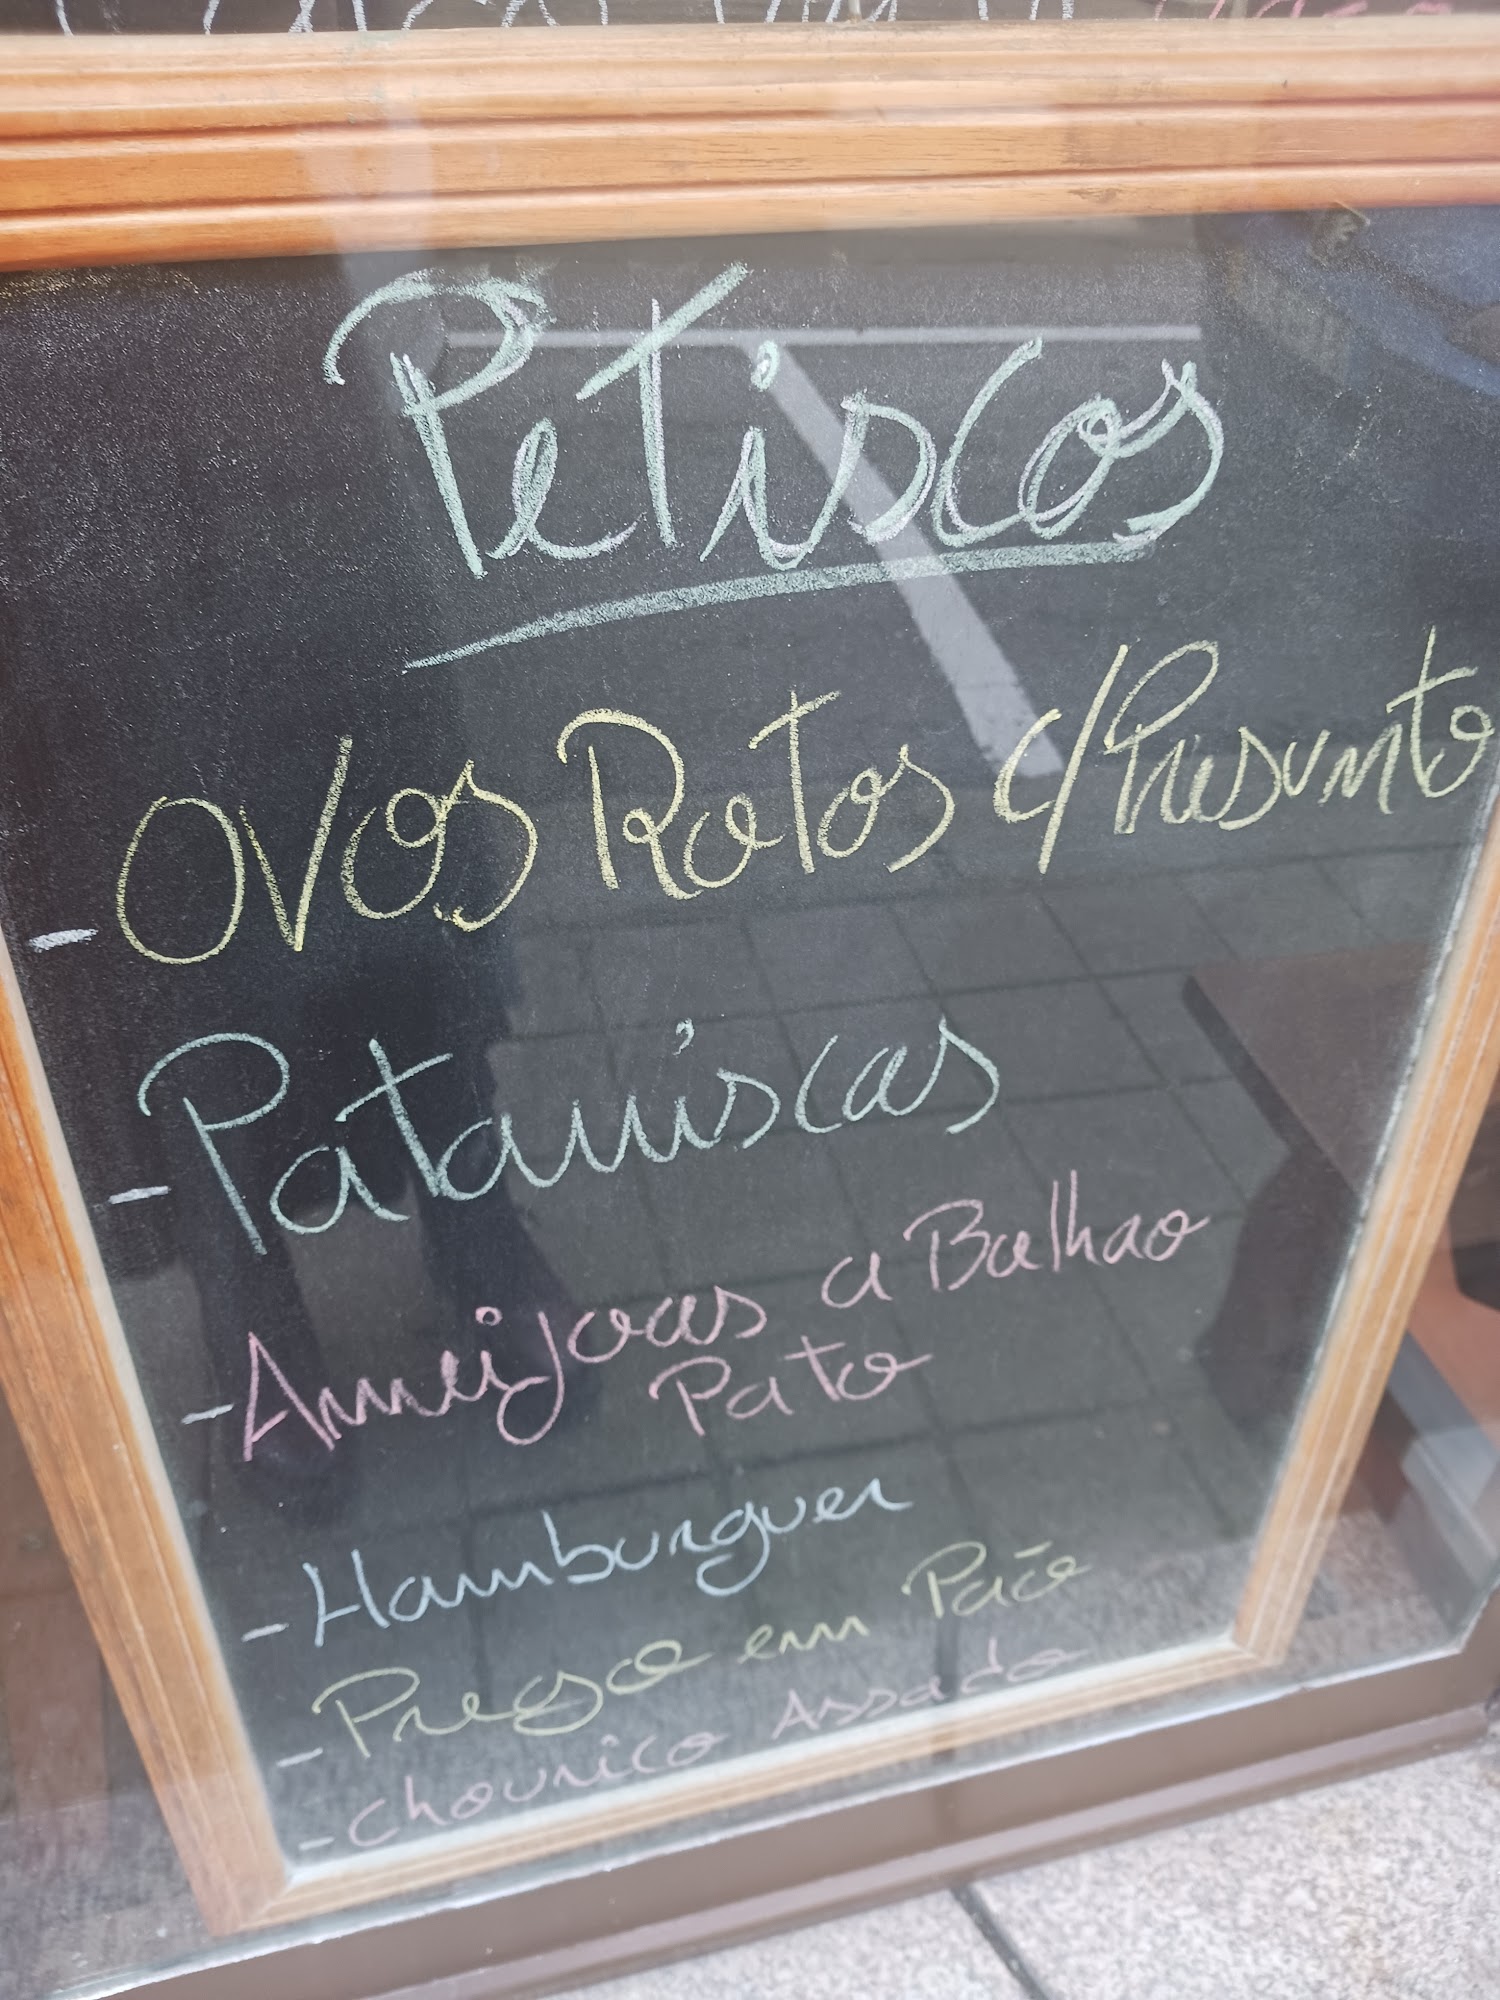 Petiscos
- Ovos Rotos c/ Presunto
- Pataniscas
- Ameijoas a Bulhao
Pato
- Hamburguer
- Prego em Pão
- Chourico Assado